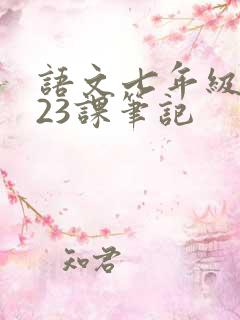 語文七年級
23課筆記
知君